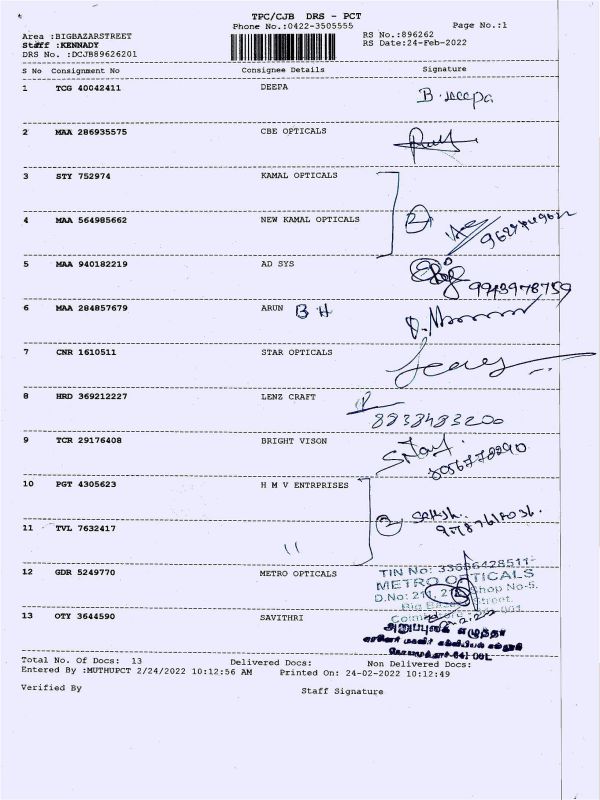 TPC/CJB DRS - PCT
Phone No.:0422-3505555
Page No.:1
Area :BIGBAZARSTREET
RS No.:896262
Staff :KENNADY
RS Date:24-Feb-2022
DRS No. :DCJB89626201
S No Consignment No Consignee Details Signature
1 TCG 40042411 DEEPA B. Deepa
2 MAA 286935575 CBE OPTICALS
3 STY 752974 KAMAL OPTICALS
4 MAA 564985662 NEW KAMAL OPTICALS 2
5 MAA 940182219 AD SYS
9943978759
6 MAA 284857679 ARUN B H
7 CNR 1610511 STAR OPTICALS
8 HRD 369212227 LENZ CRAFT
8838483200
9 TCR 29176408 BRIGHT VISON
8056778290
10 PGT 4305623 H M V ENTRPRISES
2
11 TVL 7632417
"
12 GDR 5249770 METRO OPTICALS
TIN No: 33686428511
METRO OPTICALS
D.No: Shop No-5.
Big Bazaar Street.
13 OTY 3644590 SAVITHRI
Total No. Of Docs: 13 Delivered Docs: Non Delivered Docs:
Entered By :MUTHUPCT 2/24/2022 10:12:56 AM Printed On: 24-02-2022 10:12:49
Verified By Staff Signature